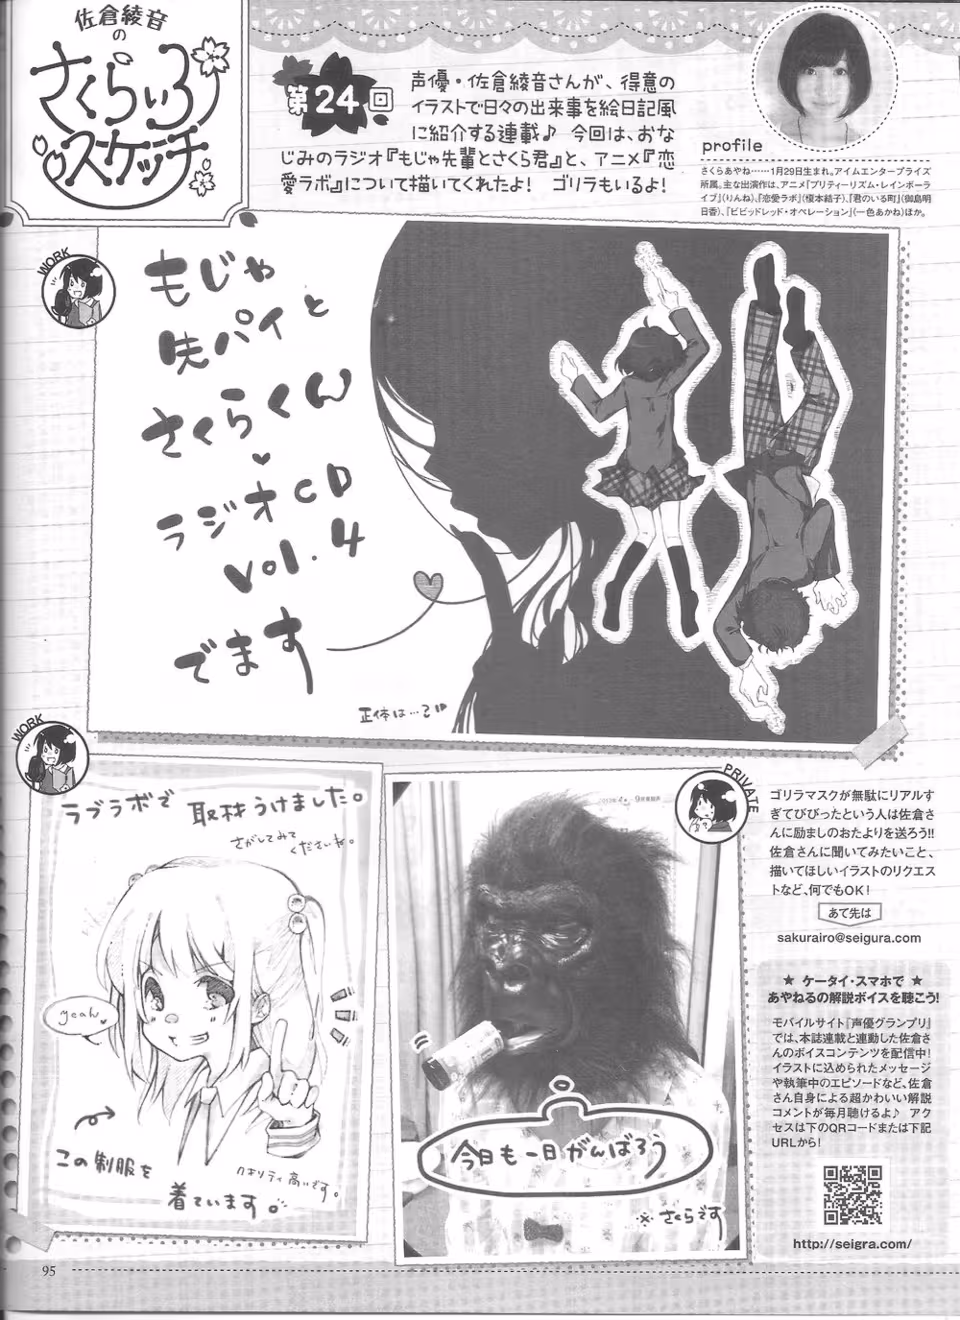 佐倉綾音
の
さくらいろ
スケッチ
第24回
声優・佐倉綾音さんが、得意の
イラストで日々の出来事を絵日記風
に紹介する連載♪ 今回は、おな
じみのラジオ『もじゃ先輩とさくら君』と、アニメ『恋
愛ラボ』について描いてくれたよ! ゴリラもいるよ!
profile
さくらあやね……1月29日生まれ。アイムエンタープライズ
所属。主な出演作は、アニメ『プリティーリズム・レインボーラ
イブ』(りんね)、『恋愛ラボ』(榎本結子)、『君のいる町』(御島明
日香)、『ビビッドレッド・オペレーション』(一色あかね)ほか。
WORK
もじゃ
先パイと
さくらくん
ラジオCD
vol.4
でます
正体は…
WORK
ラブラボで
取材うけました。
さがしてみて
くださいね。
yeah
この制服を
着ています。
クオリティ高いです。
PRIVATE
今日も一日がんばろう
※さくらです
ゴリラマスクが無駄にリアルす
ぎてびびったという人は佐倉さ
んに励ましのおたよりを送ろう!!
佐倉さんに聞いてみたいこと、
描いてほしいイラストのリクエス
トなど、何でもOK!
あて先は
sakurairo@seigura.com
★ ケータイ・スマホで ★
あやねるの解説ボイスを聴こう!
モバイルサイト『声優グランプリ』
では、本誌連載と連動した佐倉さ
んのボイスコンテンツを配信中!
イラストに込められたメッセージ
や執筆中のエピソードなど、佐倉
さん自身による超かわいい解説
コメントが毎月聴けるよ♪ アク
セスは下のQRコードまたは下記
URLから!
http://seigra.com/
95